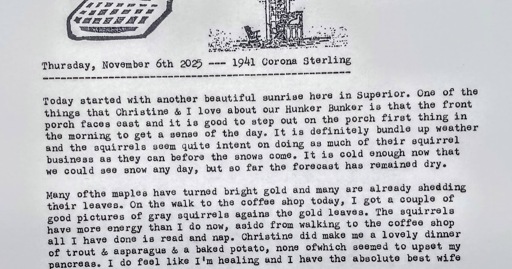 Thursday, November 6th 2025 --- 1941 Corona Sterling
Today started with another beautiful sunrise here in Superior. One of the
things that Christine & I love about our Hunker Bunker is that the front
porch faces east and it is good to step out on the porch first thing in
the morning to get a sense of the day. It is definitely bundle up weather
and the squirrels seem quite intent on doing as much of their squirrel
business as they can before the snows come. It is cold enough now that
we could see snow any day, but so far the forecast has remained dry.
Many ofthe maples have turned bright gold and many are already shedding
their leaves. On the walk to the coffee shop today, I got a couple of
good pictures of gray squirrels agains the gold leaves. The squirrels
have more energy than I do now, aside from walking to the coffee shop
all I have done is read and nap. Christine did make me a lovely dinner
of trout & asparagus & a baked potato, none ofwhich seemed to upset my
pancreas. I do feel like I'm healing and I have the absolute best wife